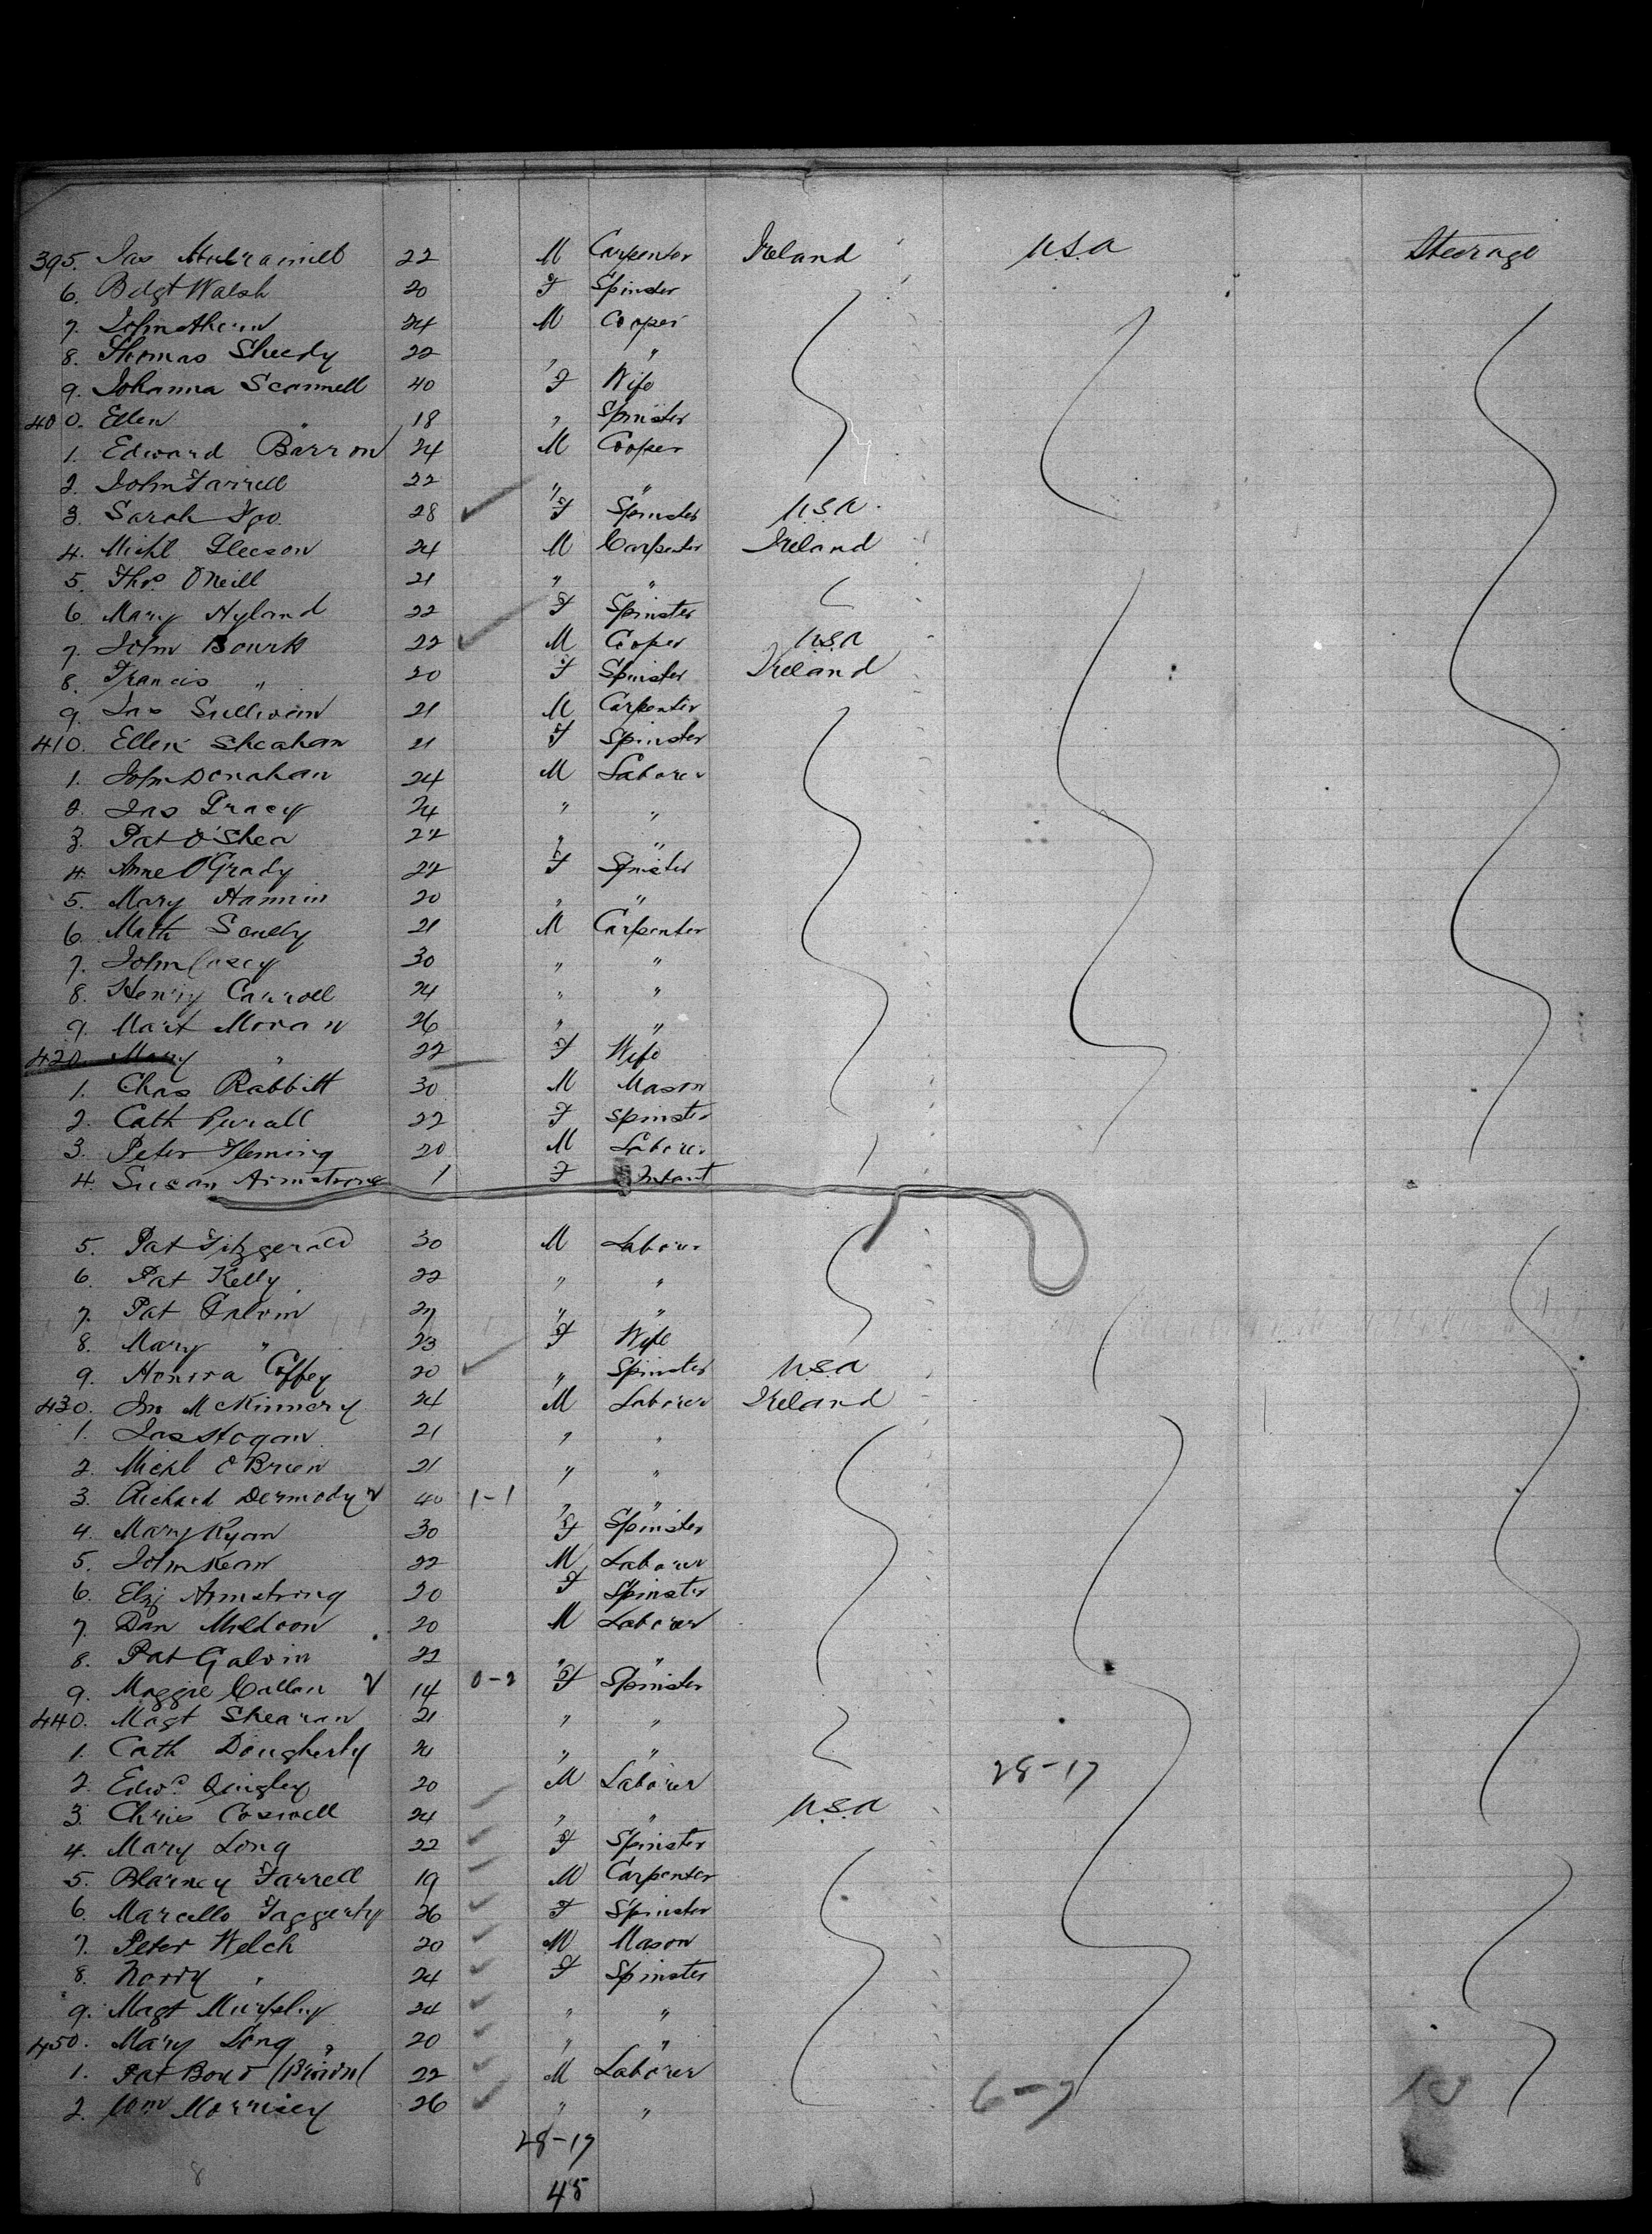 395. Jas 22 M Carpenter Ireland U.S.A Steerage
6. Bdgt Walsh 20 F Spinster
7. John Ahern 24 M Cooper
8. Thomas Sheedy 22 " "
9. Johanna Scannell 40 F Wife
400. Ellen " 18 " Spinster
1. Edward Barron 24 M Cooper
2. John Farrell 22 " "
3. Sarah 28 F Spinster U.S.A.
4. Michl Gleeson 24 M Carpenter Ireland
5. Thos. O'Neill 21 " "
6. Mary Hyland 22 F Spinster
7. John Bourk 22 M Cooper U.S.A
8. Francis " 20 F Spinster Ireland
9. Jas Sullivan 21 M Carpenter
410. Ellen Sheahan 21 F Spinster
1. John Donahan 24 M Laborer
2. Jas Gracy 24 " "
3. Pat O'Shea 22 " "
4. Anne O'Grady 22 F Spinster
5. Mary Hannin 20 " "
6. Math 21 M Carpenter
7. John Casey 30 " "
8. Henry Carroll 24 " "
9. Mart Moran 26 " "
420. Mary " 22 F Wife
1. Chas Rabbitt 30 M Mason
2. Cath 22 F Spinster
3. Peter Fleming 20 M Laborer
4. Susan Armstrong 1 F Infant
5. Pat Fitzgerald 30 M Laborer
6. Pat Kelly 22 " "
7. Pat Galvin 27 " "
8. Mary " 23 F Wife
9. Honora Coffey 20 " Spinster U.S.A
430. Jno McKinnery 24 M Laborer Ireland
1. Jas Hogan 21 " "
2. Michl O'Brien 21 " "
3. Richard Dermody 40 1-1 " "
4. Mary Ryan 30 F Spinster
5. John Kean 22 M Laborer
6. Elz Armstrong 20 F Spinster
7. Dan Muldoon 20 M Laborer
8. Pat Galvin 22 " "
9. Maggie Callan 14 0-2 F Spinster
440. Magt Shearan 21 " "
1. Cath Dougherty 21 " "
2. Edwd. Quigley 20 M Laborer 28-17
3. Chris Coswell 24 " " U.S.A
4. Mary Long 22 F Spinster
5. Blarney Farrell 19 M Carpenter
6. Marcello Faggerty 26 F Spinster
7. Peter Welch 20 M Mason
8. Norry " 24 F Spinster
9. Magt Murphy 24 " "
450. Mary Long 20 " "
1. Pat 22 M Laborer
2. Wm Morrisey 26 " " 6-7
28-17
8
45